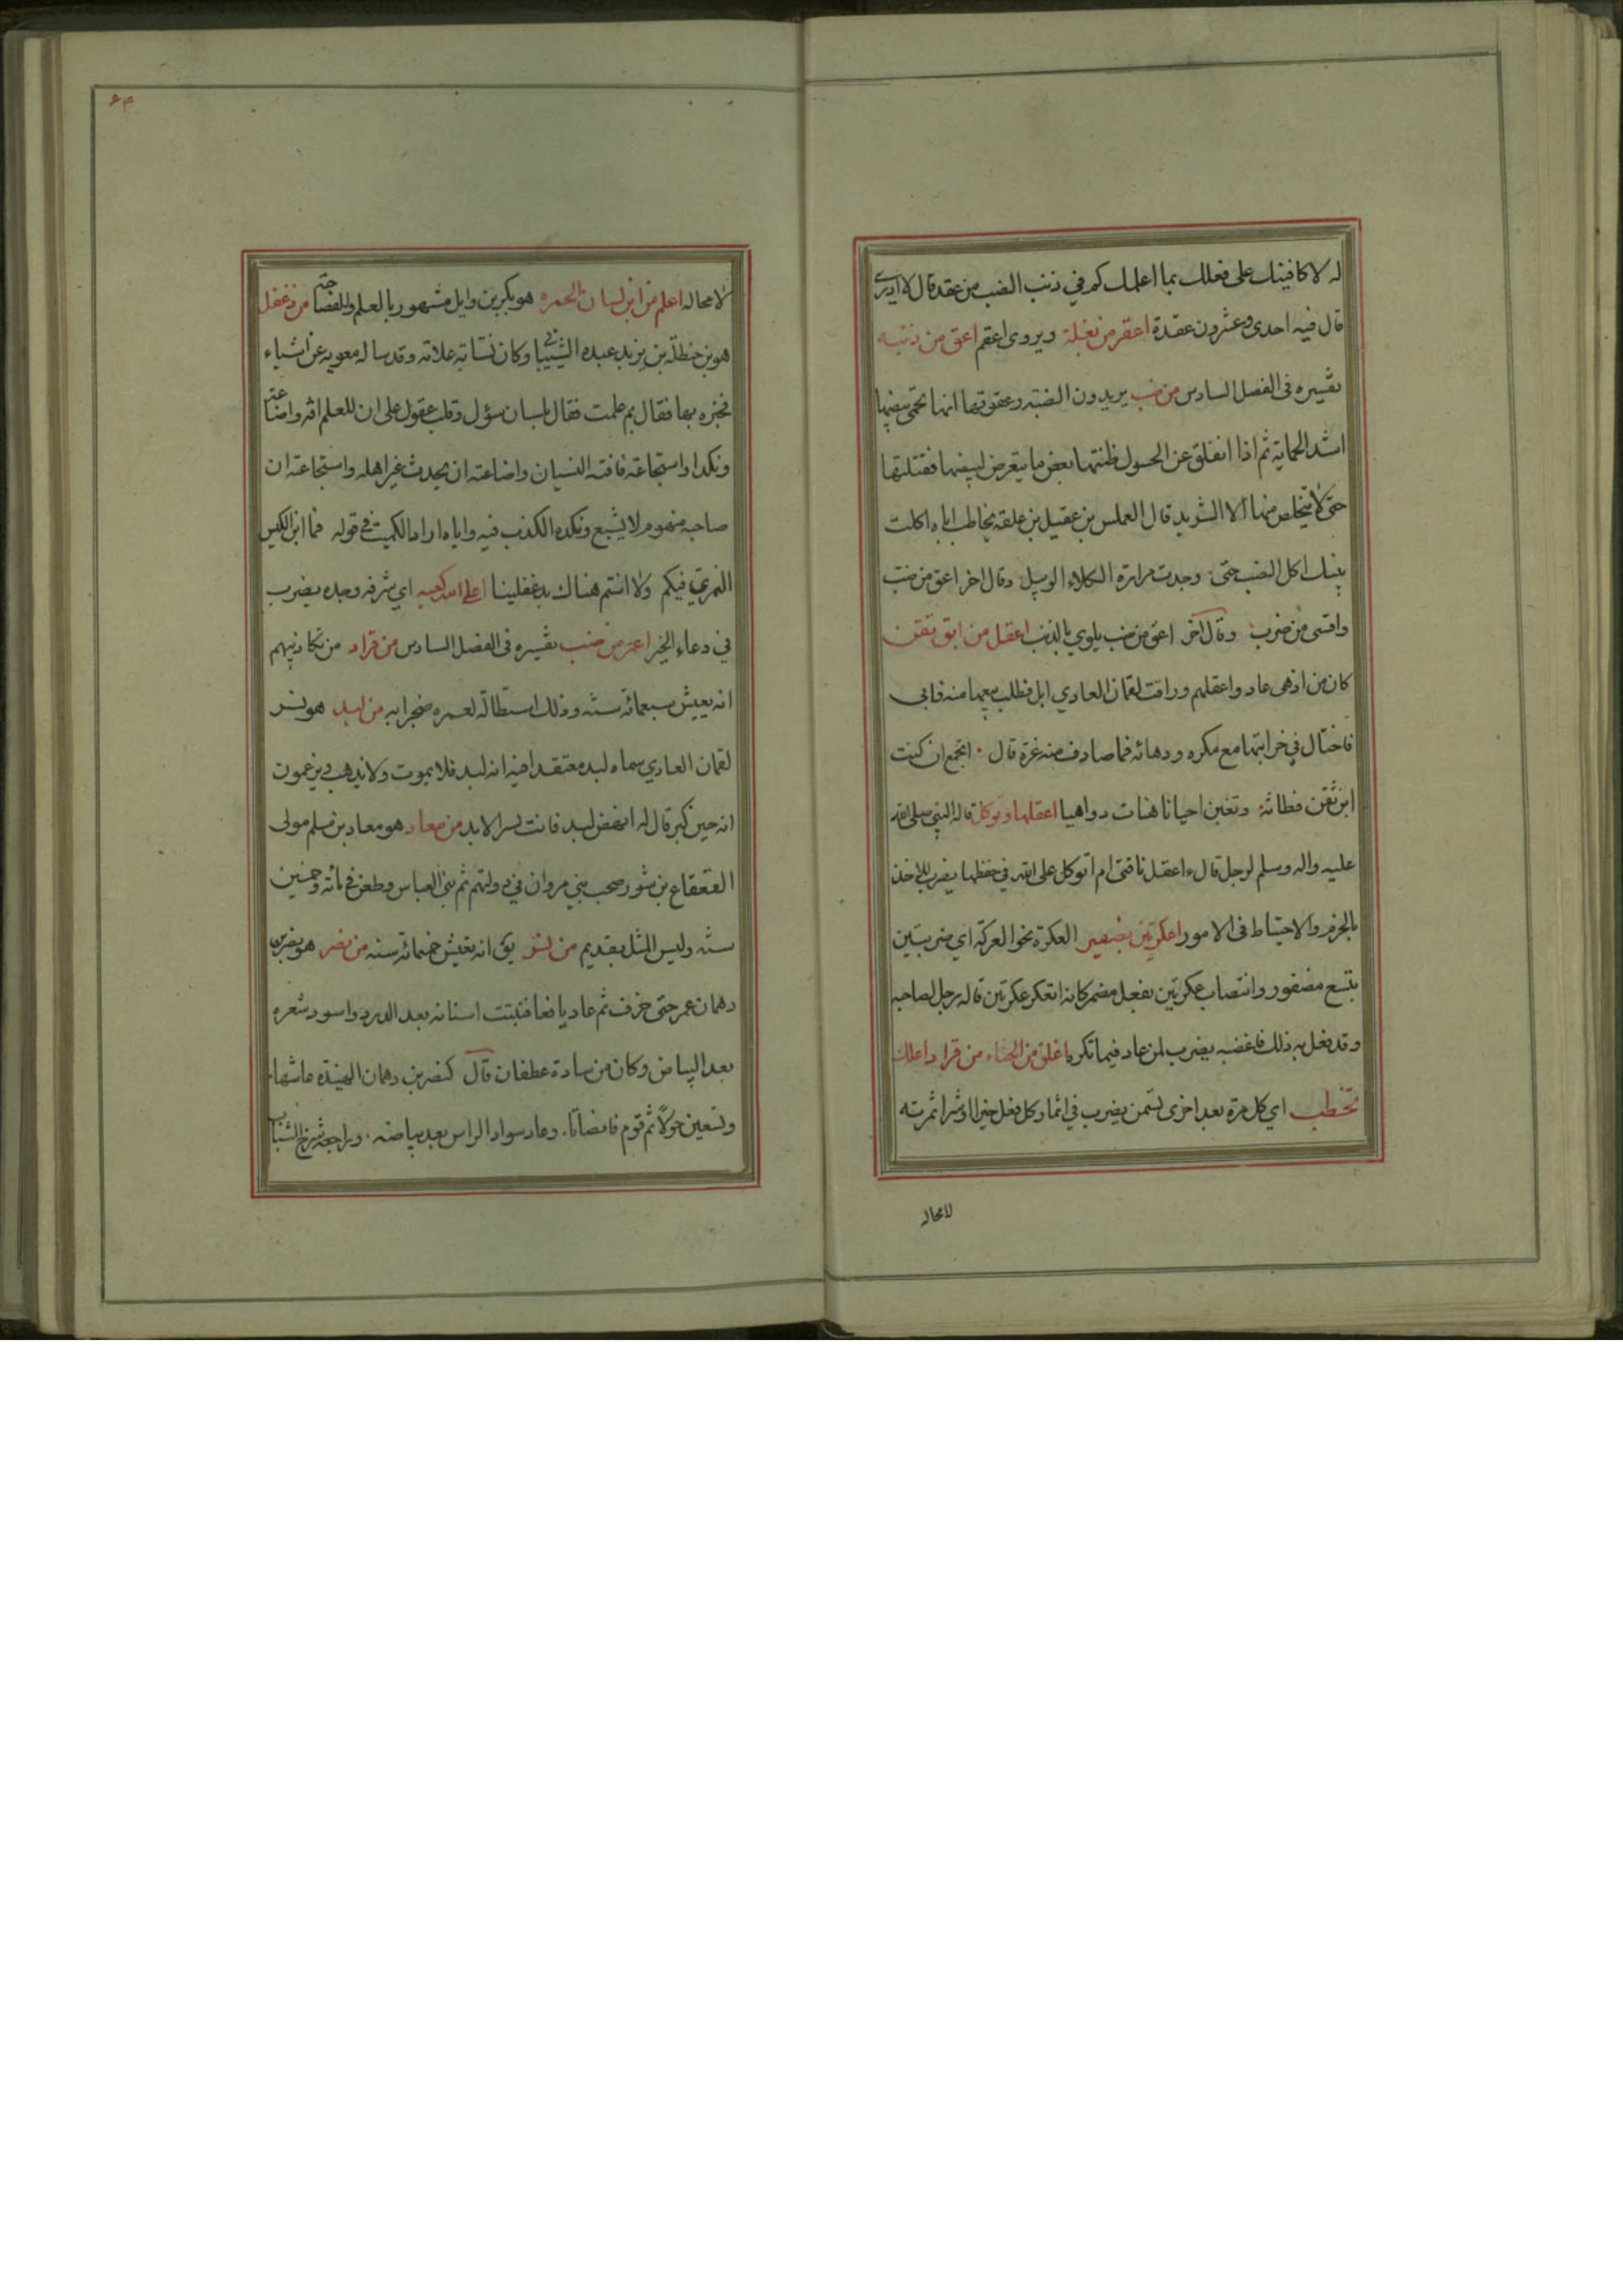 له لاكافينك على فعلك بما اعلمك كم في ذنب الضب من عقد قال لا ادرى
قال فيه احدى وعشرون عقدة اعقر من بغلة ويروى اعقم اعق من ذئبة
تفسيره فى الفصل السادس من ضب يريدون الضبة وعقوقها انها تحمى بيضها
اشد الحماية ثم اذا انفلق عن الحسول ظنتها بعض ما يتعرض لبيضها فقتلتها
حتى لا يتخلص منها الا الشريد قال العملس بن عقيل بن علقه يخاطب اباه اكلت
بنيك اكل الضب حتى وجدت مرارة الكلاء الوبيل وقال اخر اعق من ضب
واقسى من ضرب وقال اخر اعق من ضب يلوي بالذنب اعقل من ابن تقن
كان من ادهى عاد واعقلهم ورامت لقمان العادي ابل فطلب بيعها منه فابى
فاحتال في خرابتها مع مكره ودهائه فما صادف منه غرة قال اتجمع ان كنت
ابن تقن فطانة وتغبن احيانا هنات دواهيا اعقلها وتوكل قاله النبي صلى الله
عليه واله وسلم لرجل قال ءاعقل ناقتى ام اتوكل على الله في حفظها يضرب للاخذ
بالحزم والاحتياط فى الامور اعكرتين بضفير العكرة نحو العركة اي ضربتين
بتسع مضفور وانتصاب عكرتين بفعل مضمر كانه اتعكر عكرتين قاله رجل لصاحبه
وقد فعل به ذلك فاغضبه يضرب لمن عاد فيما تكره اعلق من الحناء من قراد اعلك
تحطب اي كل مرة بعد اخرى تسمن يضرب في انما وكل فعل خيرا او شرا ثمرته
لامحاله
۶۳
لامحاله اعلم من ابن لسان الحمره هو بكر بن وايل مشهور بالعلم والفصاحة من دغفل
هو بن حنظلة بن يزيد عبده الشيبانى وكان نسابة علامة وقد ساله معويه عن اشياء
فخبره بها فقال بم علمت فقال بلسان سؤل وقلب عقول على ان للعلم افه واضاعته
ونكدا واستجاعة فافته النسيان واضاعته ان يحدث غير اهله واستجاعته ان
صاحبه منهوم لا يشبع ونكده الكذب فيه واياه اراد الكميت في قوله فما ابن الكيس
النمري فيكم ولا انتم هناك بدغفلينا اعلى الله كعبه اي شرفه وجده يضرب
في دعاء الخير اعمر من ضب تفسيره فى الفصل السادس من قراد من تكاذيبهم
انه يعيش سبعمائه سنه وذلك استطالة لعمره ضجرا به من لبد هو نسر
لقمان العادي سماه لبد معتقدا فيه انه لبد فلا يموت ولا يذهب ويزعمون
انه حين كبر قال له انهض لبد فانت نسر الابد من معاذ هو معاذ بن مسلم مولى
القعقاع بن شور صحب بني مروان في دولتهم ثم بنى العباس وطعن فى مائه وخمسين
سنه وليس المثل بقديم من نسر يق انه يعيش خمسمائه سنه من نصر هو نصر بن
دهمان عمر حتى خرف ثم عاد يافعا فنبتت اسنانه بعد الدرد واسود شعره
بعد البياض وكان من سادة غطفان قال كنصر بن دهمان الهنيدة عاشها
وتسعين حولا ثم قوم فانصاتا وعاد سواد الراس بعد بياضه وراجعه شرخ الشباب